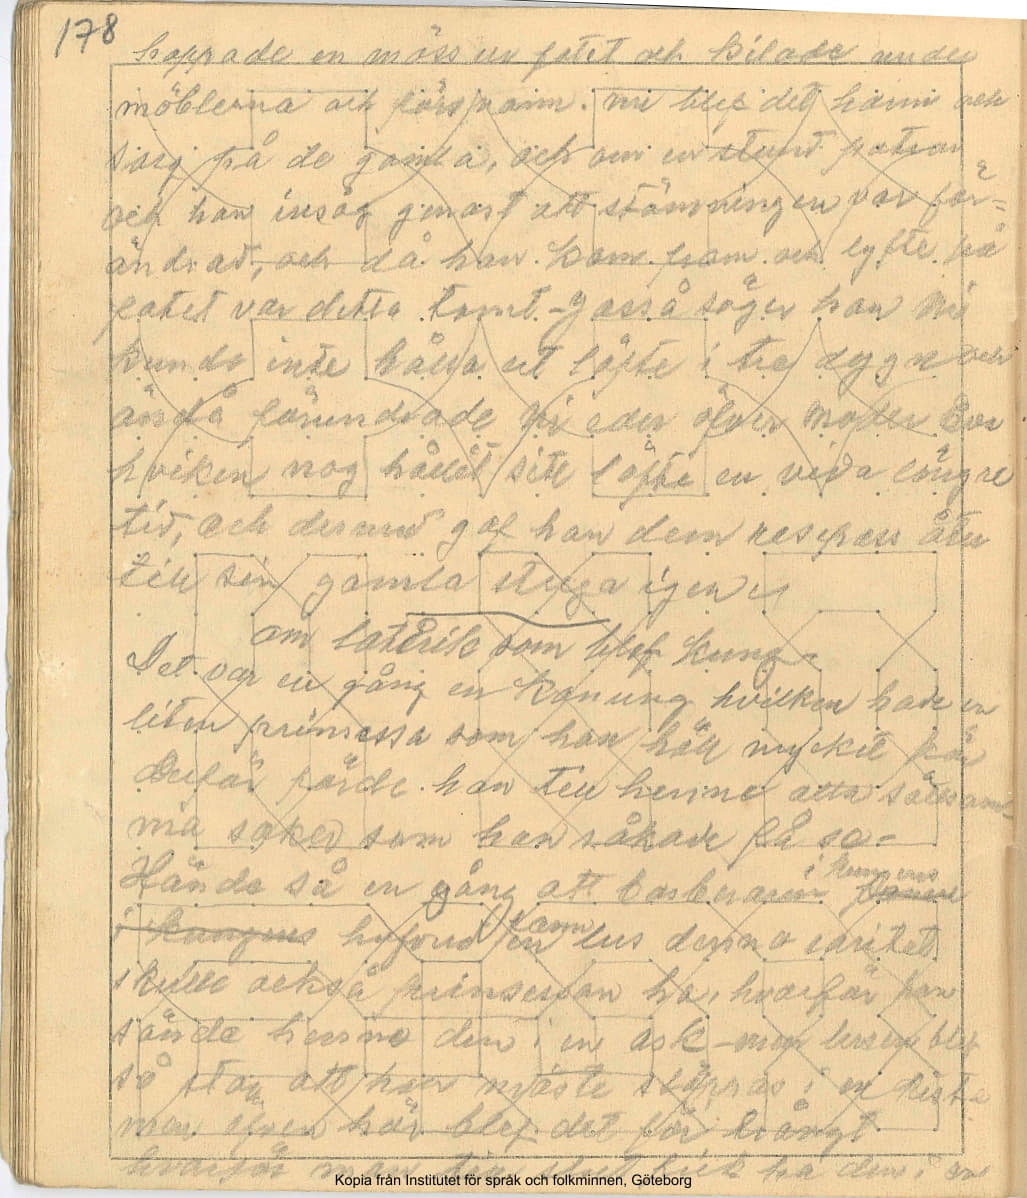 178
hoppade en möss ur fatet och kilade under
möblerna och försvann. nu blef det harm och
sorg på de gamla, och om en stund patron
och han insåg genast att stämningen var för-
ändrad, och då han kom fram och lyfte på
fatet var detta tomt. - Jasså säger han Ni
kunde inte hålla ett löfte i tre dygn och
ändå förundrade Ni eder öfver moder Eva
hvilken nog hållit sitt löfte en vida längre
tid, och dermed gaf han dem respass åter
till sin gamla stuga igen
om som blef kung -
Det var en gång en Konung hvilken hade en
liten prinsessa som han höll mycket för
Derför förde han till henne alla sällsam-
ma saker som han råkade få se -
Hände så en gång att barberaren i kungens
i kungens hufvud fann en lus denna raritet
skulle också prinsessan ha, hvarför han
sände henne den i en ask - men lusen blef
så stor att han måste släppas i en kista
men äfven här blef det för trångt
hvarför man till slut fick ha den i en
Kopia från Institutet för språk och folkminnen, Göteborg